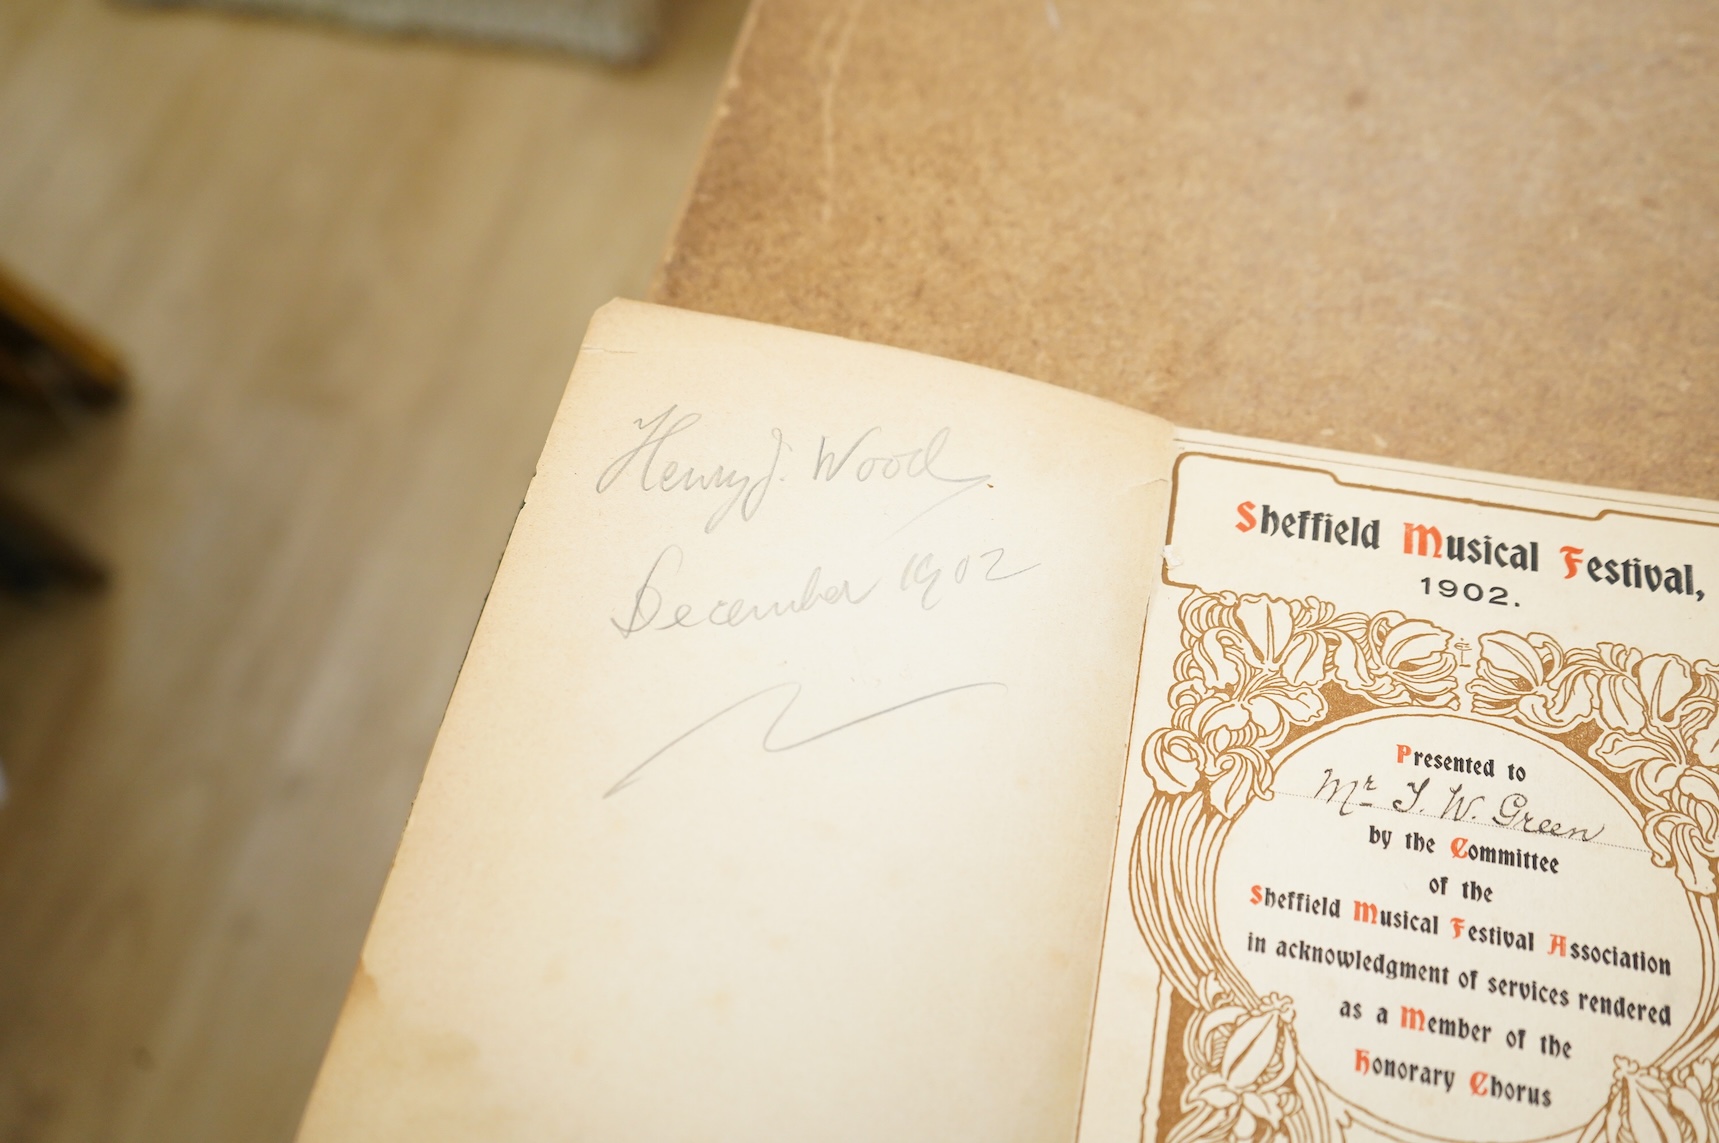 Henry J. Wood
December 1902
Sheffield Musical Festival,
1902.
Presented to
Mr J. W. Green
by the Committee
of the
Sheffield Musical Festival Association
in acknowledgment of services rendered
as a Member of the
Honorary Chorus